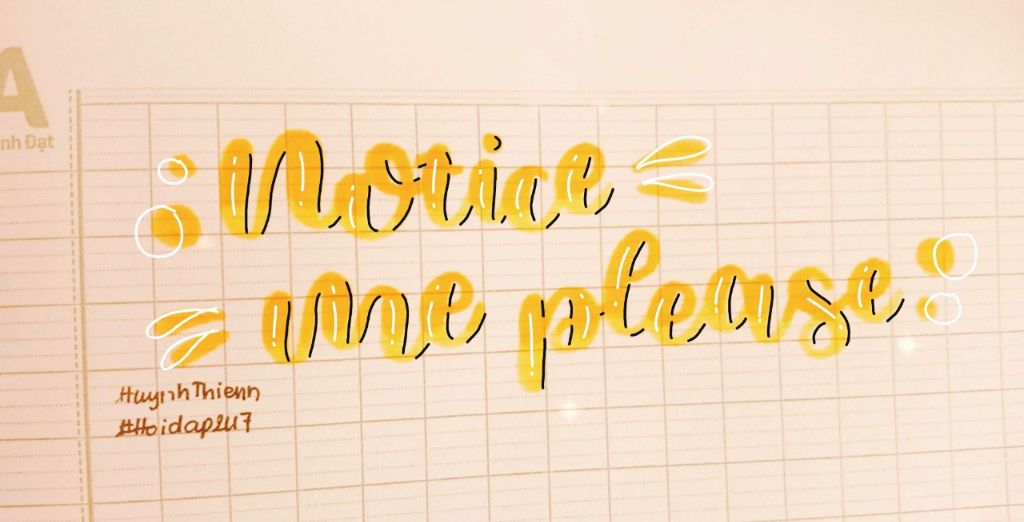 A
nh Đạt
Notice
me please
#HuynhThienn
#Hoidap247